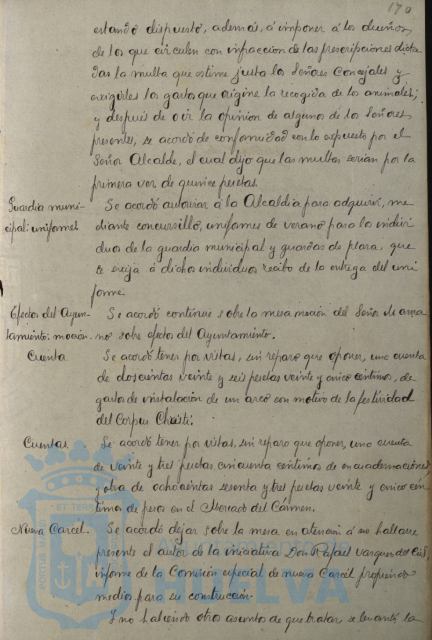 170
estando dispuesto, además, á imponer á los dueños
de los que circulen con infracción de las prescripciones dicta
das la multa que estime justa los Señores Concejales y
exigirles los gastos que origine la recogida de los animales;
y después de oir la opinión de algunos de los Señores
presentes, se acordó de conformidad con lo expuesto por el
Señor Alcalde, el cual dijo que las multas serían por la
primera vez de quince pesetas.
Guardia muni-
cipal: uniformes
Se acordó autorizar á la Alcaldía para adquirir, me
diante concursillo, uniformes de verano para los indivi
duos de la guardia municipal y guardas de plaza, que
se exija á dichos individuos recibo de la entrega del uni
forme
Efectos del Ayun-
tamiento: moción.
Se acordó continue sobre la mesa moción del Señor Marchena
no sobre efectos del Ayuntamiento.
Cuenta
Se acordó tener por vistas, sin reparo que oponer, una cuenta
de doscientas veinte y seis pesetas veinte y cinco céntimos, de
gastos de instalación de un arco con motivo de la festividad
del Corpus Christi.
Cuentas
Se acordó tener por vistas, sin reparo que oponer, una cuenta
de veinte y tres pesetas cincuenta céntimos de encuadernaciones
y otra de ochocientas sesenta y tres pesetas veinte y cinco cén
timos de pesos en el Mercado del Carmen.
Nueva Carcel.
Se acordó dejar sobre la mesa en atención á no hallarse
presente el autor de la iniciativa Don Rafael Vazquez del Cid,
informe de la Comisión especial de nueva Carcel proponiendo
medios para su construcción.
Y no habiendo otros asuntos de que tratar se levantó la
HUELVA